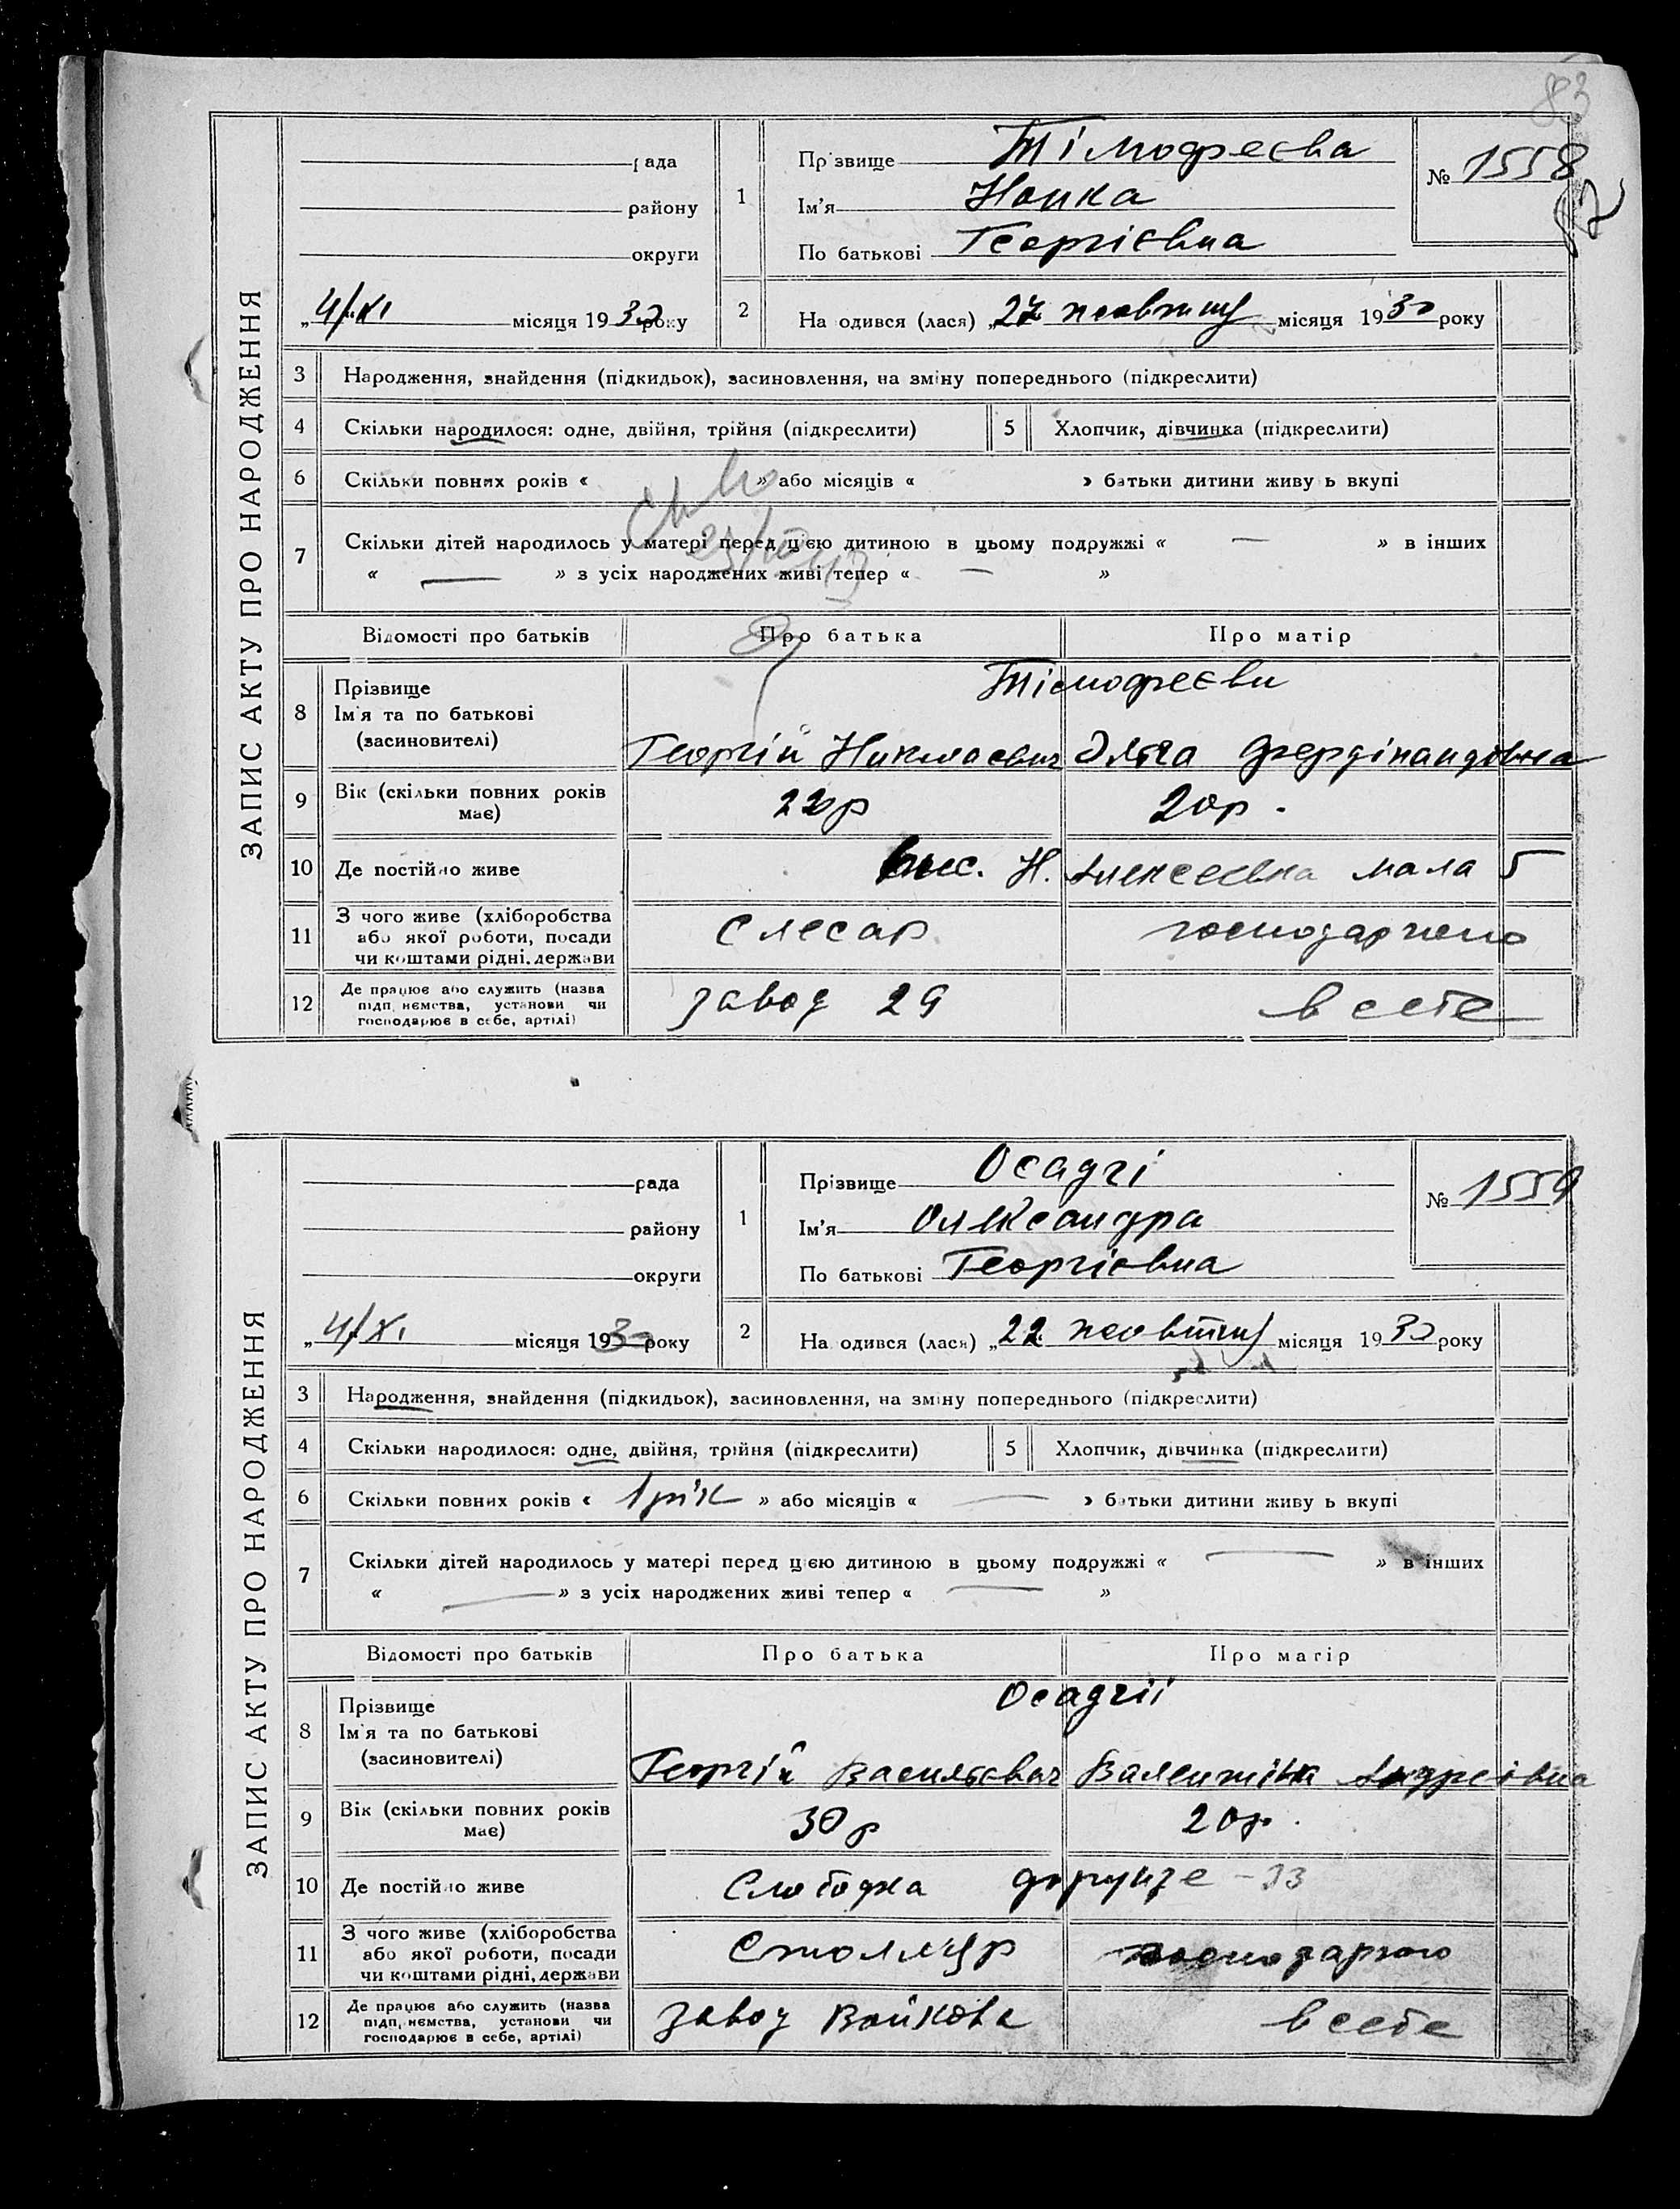 83
ЗАПИС АКТУ ПРО НАРОДЖЕННЯ
рада
району
округи
„4/XI місяця 1930 року
1
Прізвище Тімофеєва
Ім'я Нонна
По батькові Георгієвна
№ 1558
2
Народився (лася) „27 жовтня місяця 1930 року
3 Народження, знайдення (підкидьок), засиновлення, на зміну попереднього (підкреслити)
4 Скільки народилося: одне, двійня, трійня (підкреслити) 5 Хлопчик, дівчинка (підкреслити)
6 Скільки повних років « » або місяців « » батьки дитини живуть вкупі
7 Скільки дітей народилось у матері перед цією дитиною в цьому подружжі « — » в інших
« — » з усіх народжених живі тепер « — »
Відомості про батьків Про батька Про матір
8 Прізвище
Ім'я та по батькові
(засиновителі)
Тімофеєви
Георгій Николаевич Ольга Фердінандовна
9 Вік (скільки повних років має) 22р 20р.
10 Де постійно живе Н. Алексеевка мала 5
11 З чого живе (хліборобства або якої роботи, посади чи коштами рідні, держави Слесар господаркою
12 Де працює або служить (назва підприємства, установи чи господарює в себе, артілі) завод 29 в себе
ЗАПИС АКТУ ПРО НАРОДЖЕННЯ
рада
району
округи
„4/XI місяця 1930 року
1
Прізвище Осадчі
Ім'я Олександра
По батькові Георгієвна
№ 1559
2
Народився (лася) „22 жовтня місяця 1930 року
3 Народження, знайдення (підкидьок), засиновлення, на зміну попереднього (підкреслити)
4 Скільки народилося: одне, двійня, трійня (підкреслити) 5 Хлопчик, дівчинка (підкреслити)
6 Скільки повних років « 1 рік » або місяців « — » батьки дитини живуть вкупі
7 Скільки дітей народилось у матері перед цією дитиною в цьому подружжі « — » в інших
« — » з усіх народжених живі тепер « — »
Відомості про батьків Про батька Про матір
8 Прізвище
Ім'я та по батькові
(засиновителі)
Осадчії
Георгій Васильєвич Валентіна Андреівна
9 Вік (скільки повних років має) 30р 20р.
10 Де постійно живе Слободка Фрунзе - 33
11 З чого живе (хліборобства або якої роботи, посади чи коштами рідні, держави Столяр господаркою
12 Де працює або служить (назва підприємства, установи чи господарює в себе, артілі) завод Войкова в себе